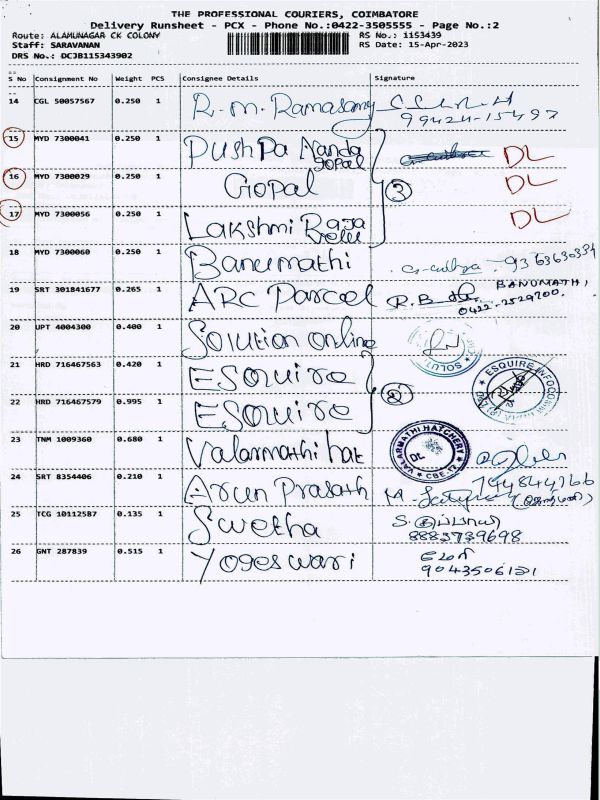 THE PROFESSIONAL COURIERS, COIMBATORE
Delivery Runsheet - PCX - Phone No.:0422-3505555 - Page No.:2
Route: ALAMUNAGAR CK COLONY RS No.: 1153439
Staff: SARAVANAN RS Date: 15-Apr-2023
DRS No.: DCJB115343902
S No Consignment No Weight PCS Consignee Details Signature
14 CGL 50057567 0.250 1 R.M. Ramasamy
99424-15497
15 MYD 7300041 0.250 1 Pushpa Nanda gopal DL
16 MYD 7300029 0.250 1 Gopal 3 DL
17 MYD 7300056 0.250 1 Lakshmi Raja DL
18 MYD 7300060 0.250 1 Banumathi 9363630334
19 SRT 301841677 0.265 1 ARC Parcel R.B BANUMATHI,
0422-2529200.
20 UPT 4004300 0.400 1 Solution online
21 HRD 716467563 0.420 1 Esquire ESQUIRE
22 HRD 716467579 0.995 1 Esquire 2
23 TNM 1009360 0.680 1 Valarmathi hat VALARMATHI HATCHERY DL CBE-12
24 SRT 8354406 0.210 1 Arun Prasath M.
25 TCG 10112587 0.135 1 Swetha S.
8883739698
26 GNT 287839 0.515 1 Yogeswari